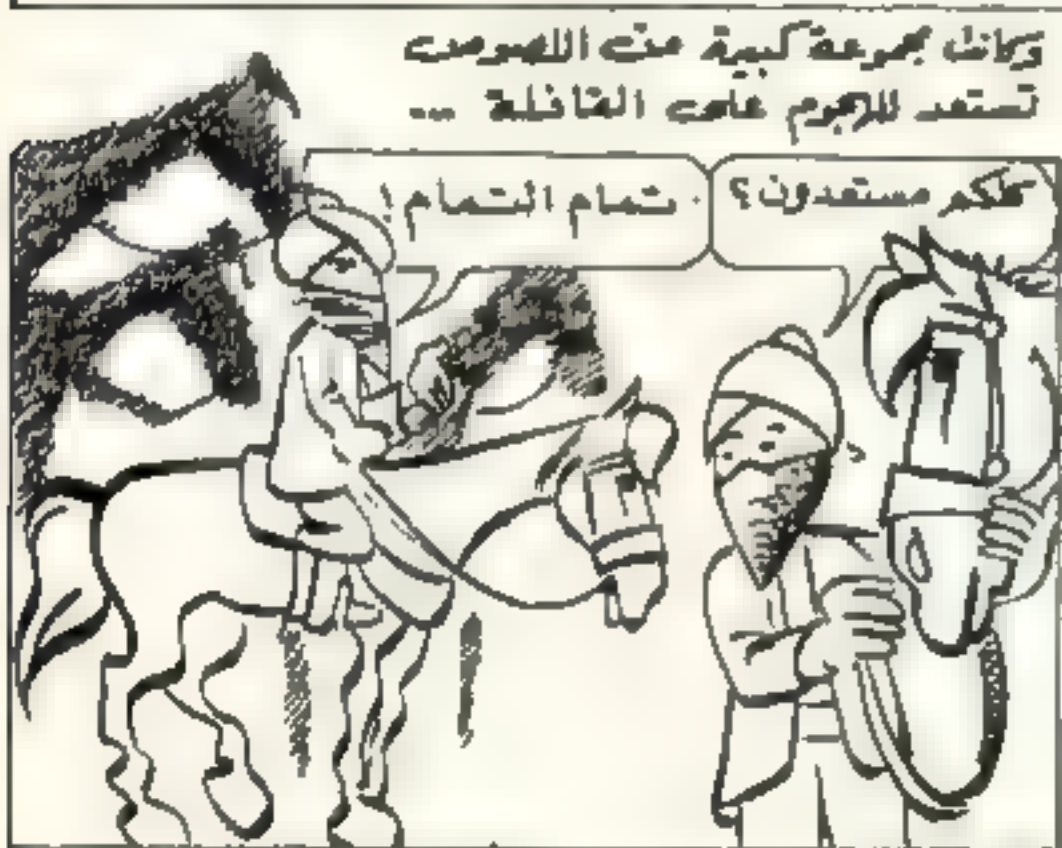 وكانت مجموعة كبيرة من اللصوص
تستعد للهجوم على القافلة ...
كلكم مستعدون؟
تمام التمام!